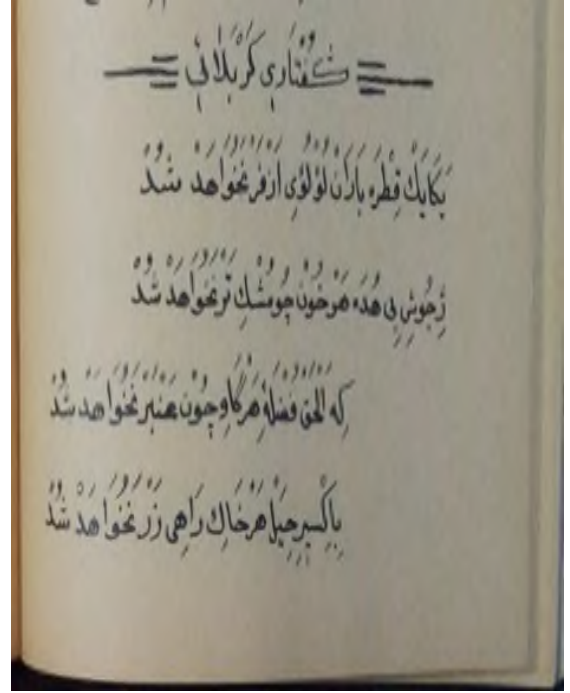 گفتاري كربلائي
يكايك قطره باران لؤلؤي ازفر نخواهد شد
زجوش بي هده هر خون چو مشك تر نخواهد شد
كه الحق فضلهٔ هر گاو چون عنبر نخواهد شد
باكسير حيل هر خاك راهي زر نخواهد شد